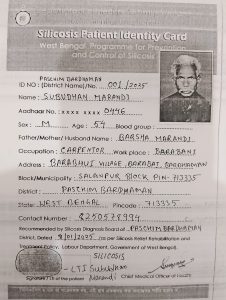 Silicosis Patient Identity Card
West Bengal Programme for Prevention
and Control of Silicosis
PASCHIM BARDHAMAN
ID NO: (District Name)/No. 001/2025
Name: SUBUDHAN MARANDI
Aadhaar No.: xxxx xxxx 0446
Sex M Age: 57 Blood group:
Father/Mother/Husband Name: BARSHA MARANDI
Occupation: CARPENTOR Work place: BARABANI
Address: VILLAGE,
Block/Municipality: SALANPUR BLOCK PIN- 713335
District: PASCHIM BARDHAMAN
State: WEST BENGAL Pincode: 713335
Contact Number: 8250578994
Recommended by Silicosis Diagnosis Board of PASCHIM BARDHAMAN
District, Dated 8/01/2025 /as per Silicosis Relief Rehabilitation and
Treatment Policy, Labour Department, Government of West Bengal).
SILICOSIS
LTI Subudhan
Marandi
Signature / LTI of the patient Chief Medical Officer of Health